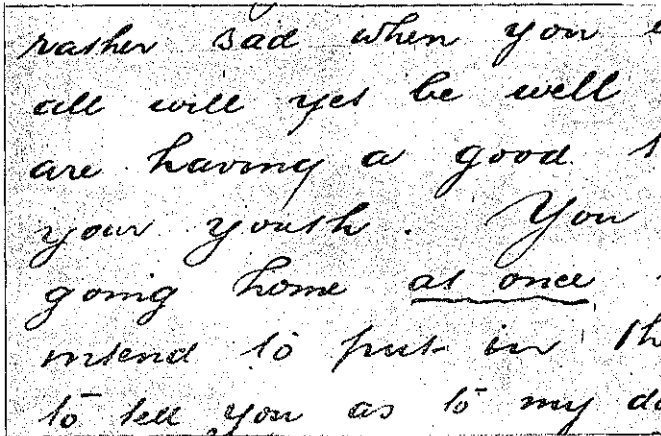 rather sad when you
all will yet be well
are having a good
your youth. You
going home at once
intend to put in th
to tell you as to my do